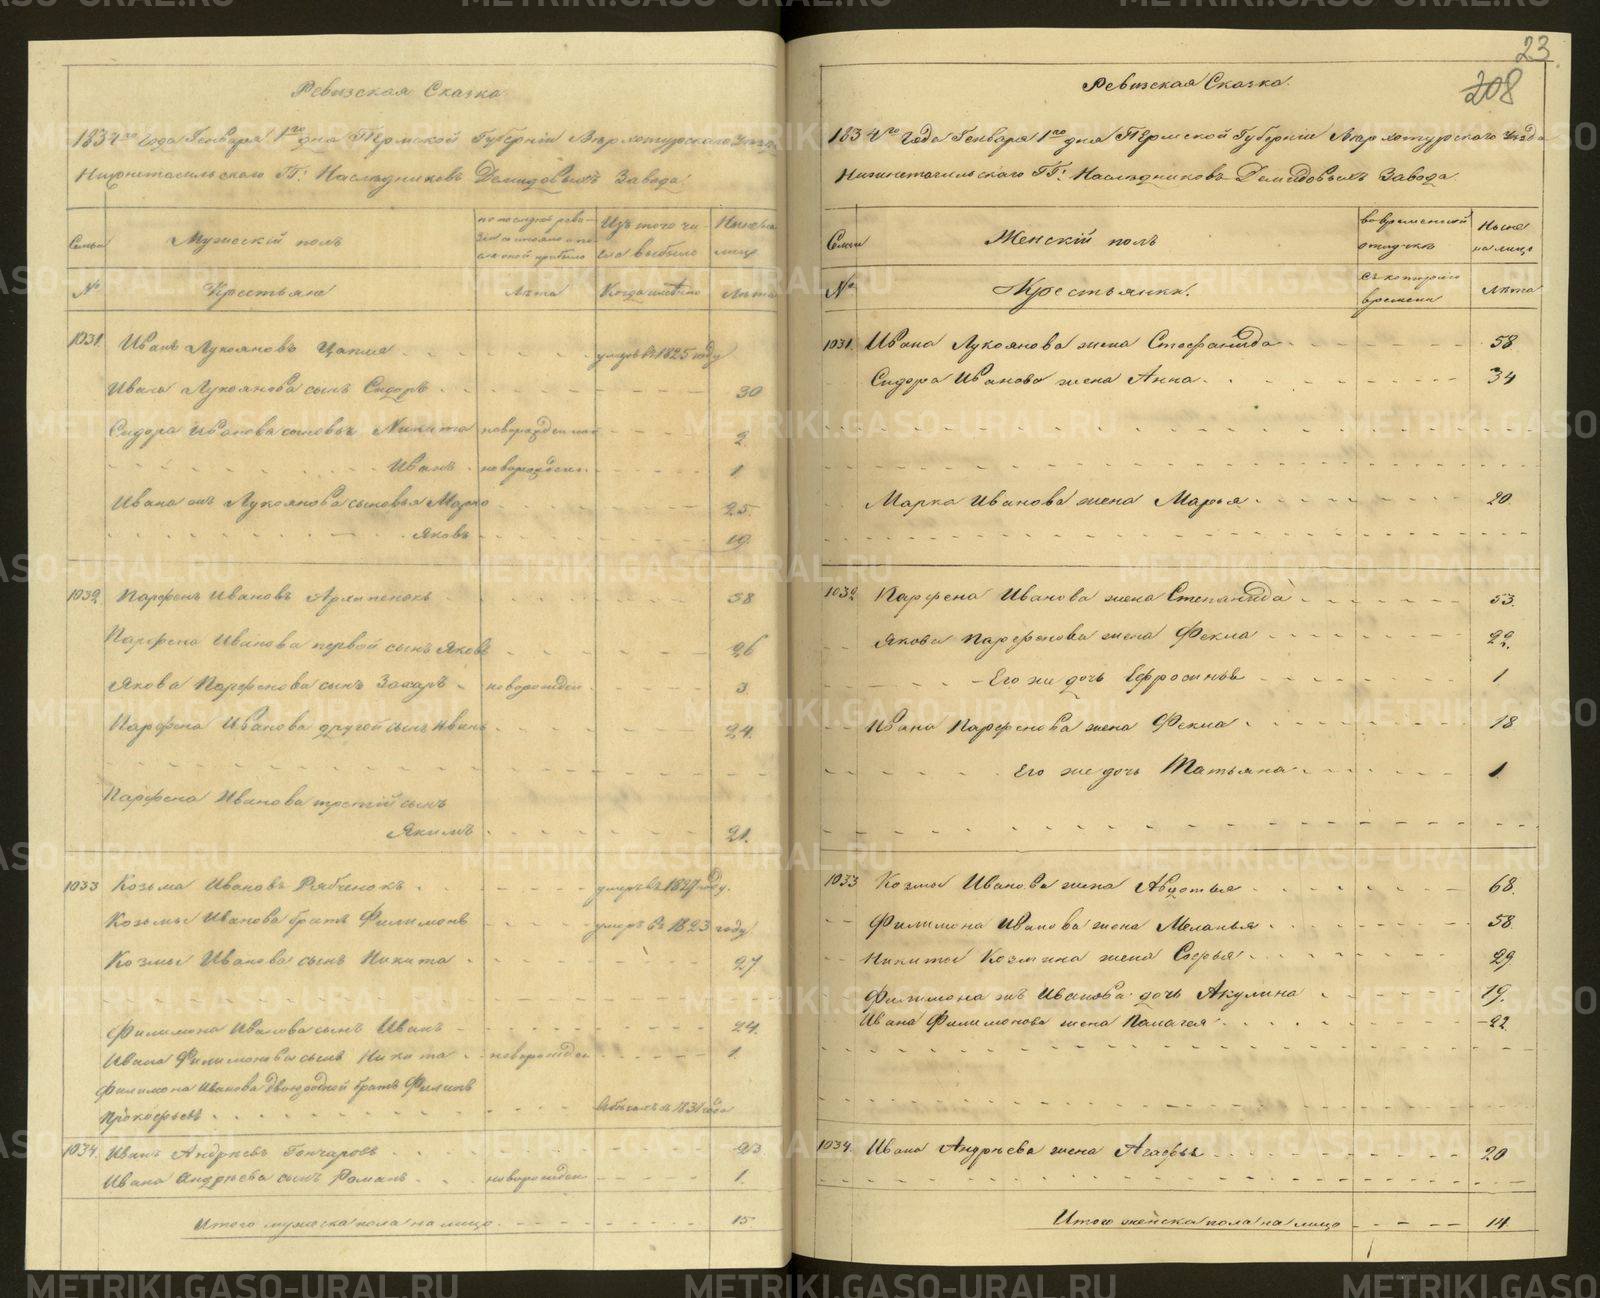 Ревизская Сказка
1834го Года Генваря 1го дня Пермской Губернии Верхотурского Уезда
Нижнетагильскаго Г.г. Наследниковъ Демидовыхъ Завода
Семьи
Мужескій полъ
Изъ того числа выбыло
Ныне на лицо
№
Крестьяне
Лѣта
Когда имянно
Лѣта
1031. Иванъ Лукояновъ умеръ въ 1825 году
Ивана Лукоянова сынъ Сидоръ 30
Сидора Иванова сыновья Никита новорожденной 2
Иванъ новорожден. 1
Ивана жъ Лукоянова сыновья Марко 25.
Яковъ 19.
1032 Парфенъ Ивановъ 58
Парфена Иванова первой сынъ Яковъ 26
Якова Парфенова сынъ Захаръ новорожден. 3.
Парфена Иванова другой сынъ Иванъ 24.
Парфена Иванова третій сынъ
Якимъ 21.
1033 Козьма Ивановъ Рябченокъ умеръ въ 1827 году.
Козьмы Иванова братъ Филимонъ умеръ въ 1823 году
Козмы Иванова сынъ Никита 27
Филимона Иванова сынъ Иванъ 24.
Ивана Филимонова сынъ Никита новорожден 1.
Филимона Иванова двоюродной братъ Филипъ
Прокофьевъ 1831 года
1034. Иванъ Андреевъ Гончаровъ 23
Ивана Андреева сынъ Романъ новорожден 1.
Итого мужеска пола на лицо 15
23
208
Ревизская Сказка
1834го Года Генваря 1го дня Пермской Губернии Верхотурского Уезда
Нижнетагильскаго Г.г. Наследниковъ Демидовыхъ Завода
Семьи
Женскій полъ
во временной отлучке
Ныне на лицо
№
Крестьянки.
съ котораго времени
лѣта
1031. Ивана Лукоянова жена Стефанида 58
Сидора Иванова жена Анна 34
Марка Иванова жена Марья 20.
1032 Парфена Иванова жена Степанида 53.
Якова Парфенова жена Фекла 22.
Его же дочь Ефросинья 1
Ивана Парфенова жена Фекла 18
Его же дочь Татьяна 1
1033 Козмы Иванова жена Авдотья 68.
Филимона Иванова жена Меланья 58.
Никиты Козмина жена Софья 29
Филимона жъ Иванова дочь Акулина 19.
Ивана Филимонова жена Палагея 22
1034. Ивана Андреева жена Агафья 20
Итого женска пола на лицо 14
METRIKI.GASO-URAL.RU